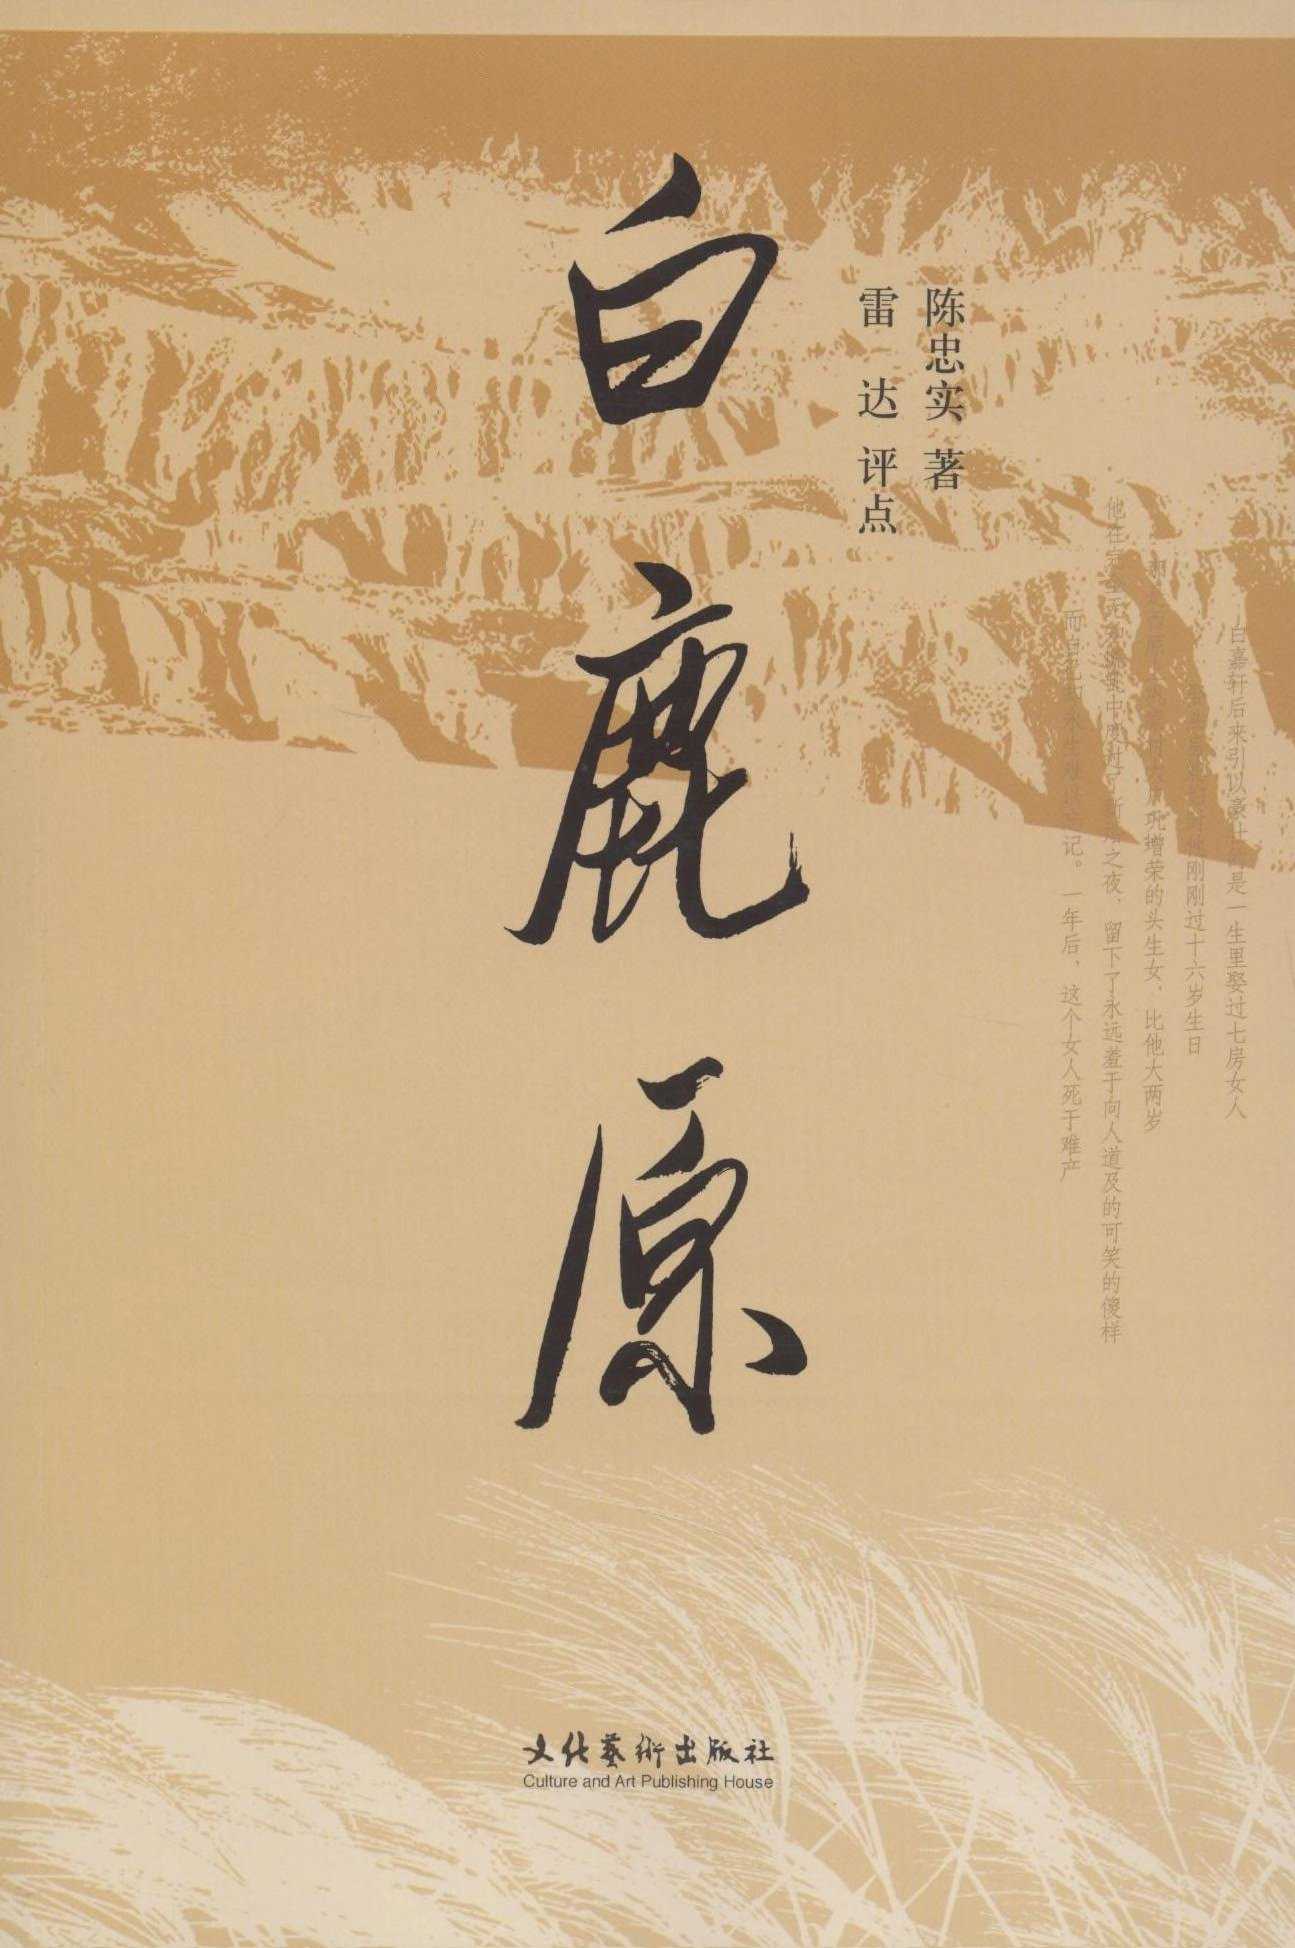 白鹿原
陈忠实 著
雷 达 评点
白嘉轩后来引以豪壮的是一生里娶过七房女人
刚刚过十六岁生日
巩增荣的头生女，比他大两岁
他在完全无知慌乱中度过了新婚之夜，留下了永远羞于向人道及的可笑的傻样
而自己却永生难以忘记。一年后，这个女人死于难产
文化藝術出版社
Culture and Art Publishing House